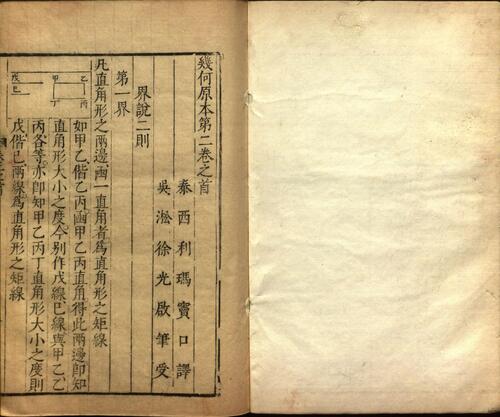 幾何原本第二卷之首
泰西利瑪竇口譯
吳淞徐光啟筆受
界說二則
第一界
凡直角形之兩邊函一直角者為直角形之矩線
如甲乙偕乙丙函甲乙丙直角得此兩邊即知
直角形大小之度今別作戊線己線與甲乙乙
丙各等亦即知甲乙丙丁直角形大小之度則
戊偕己兩線為直角形之矩線
乙
丙
甲
丁
戊
己